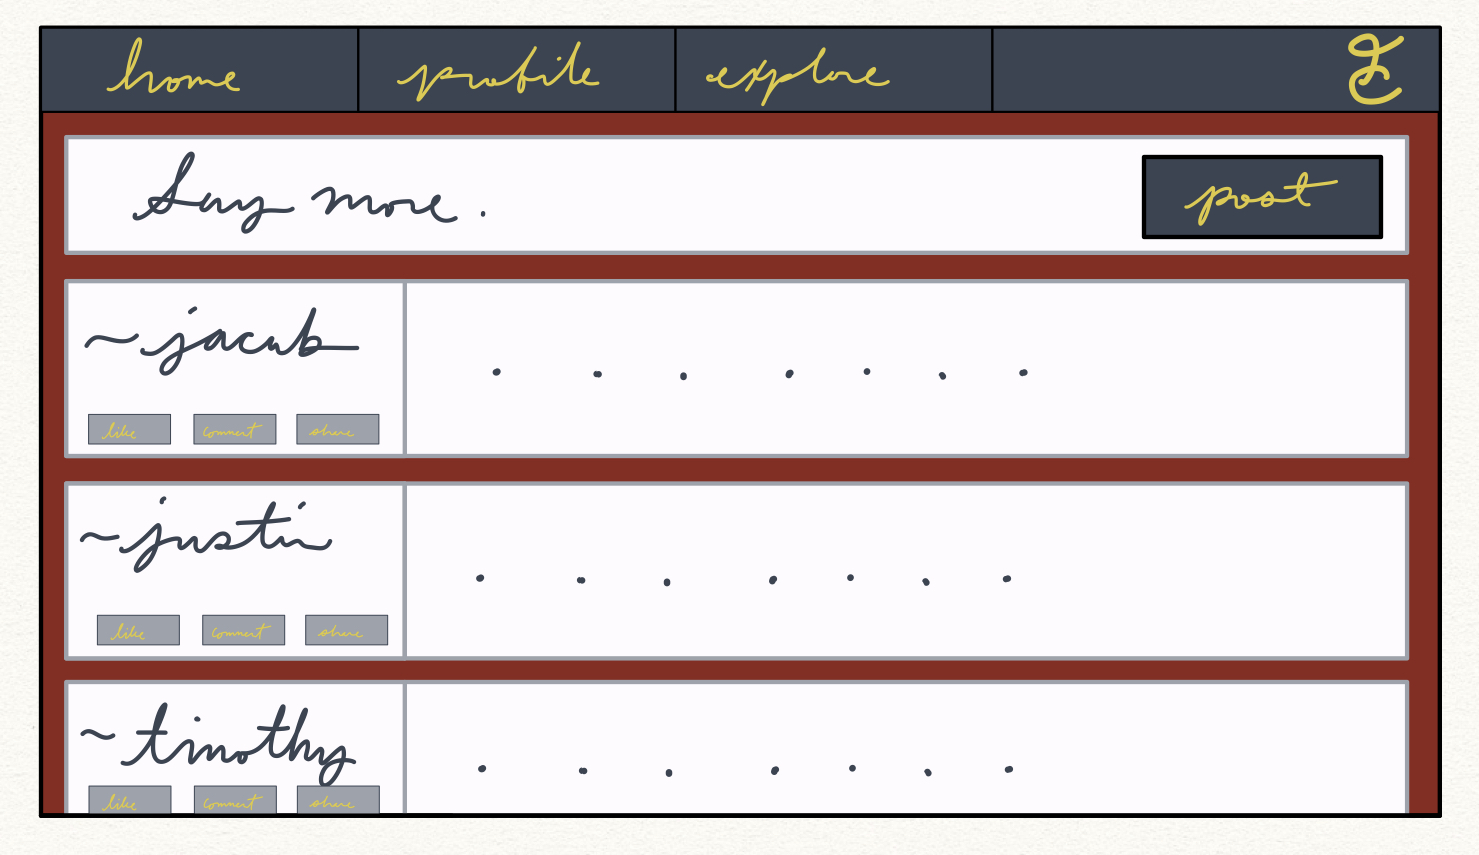 home profile explore
Say more.
post
~jacob
like comment share
~justin
like comment share
~timothy
like comment share